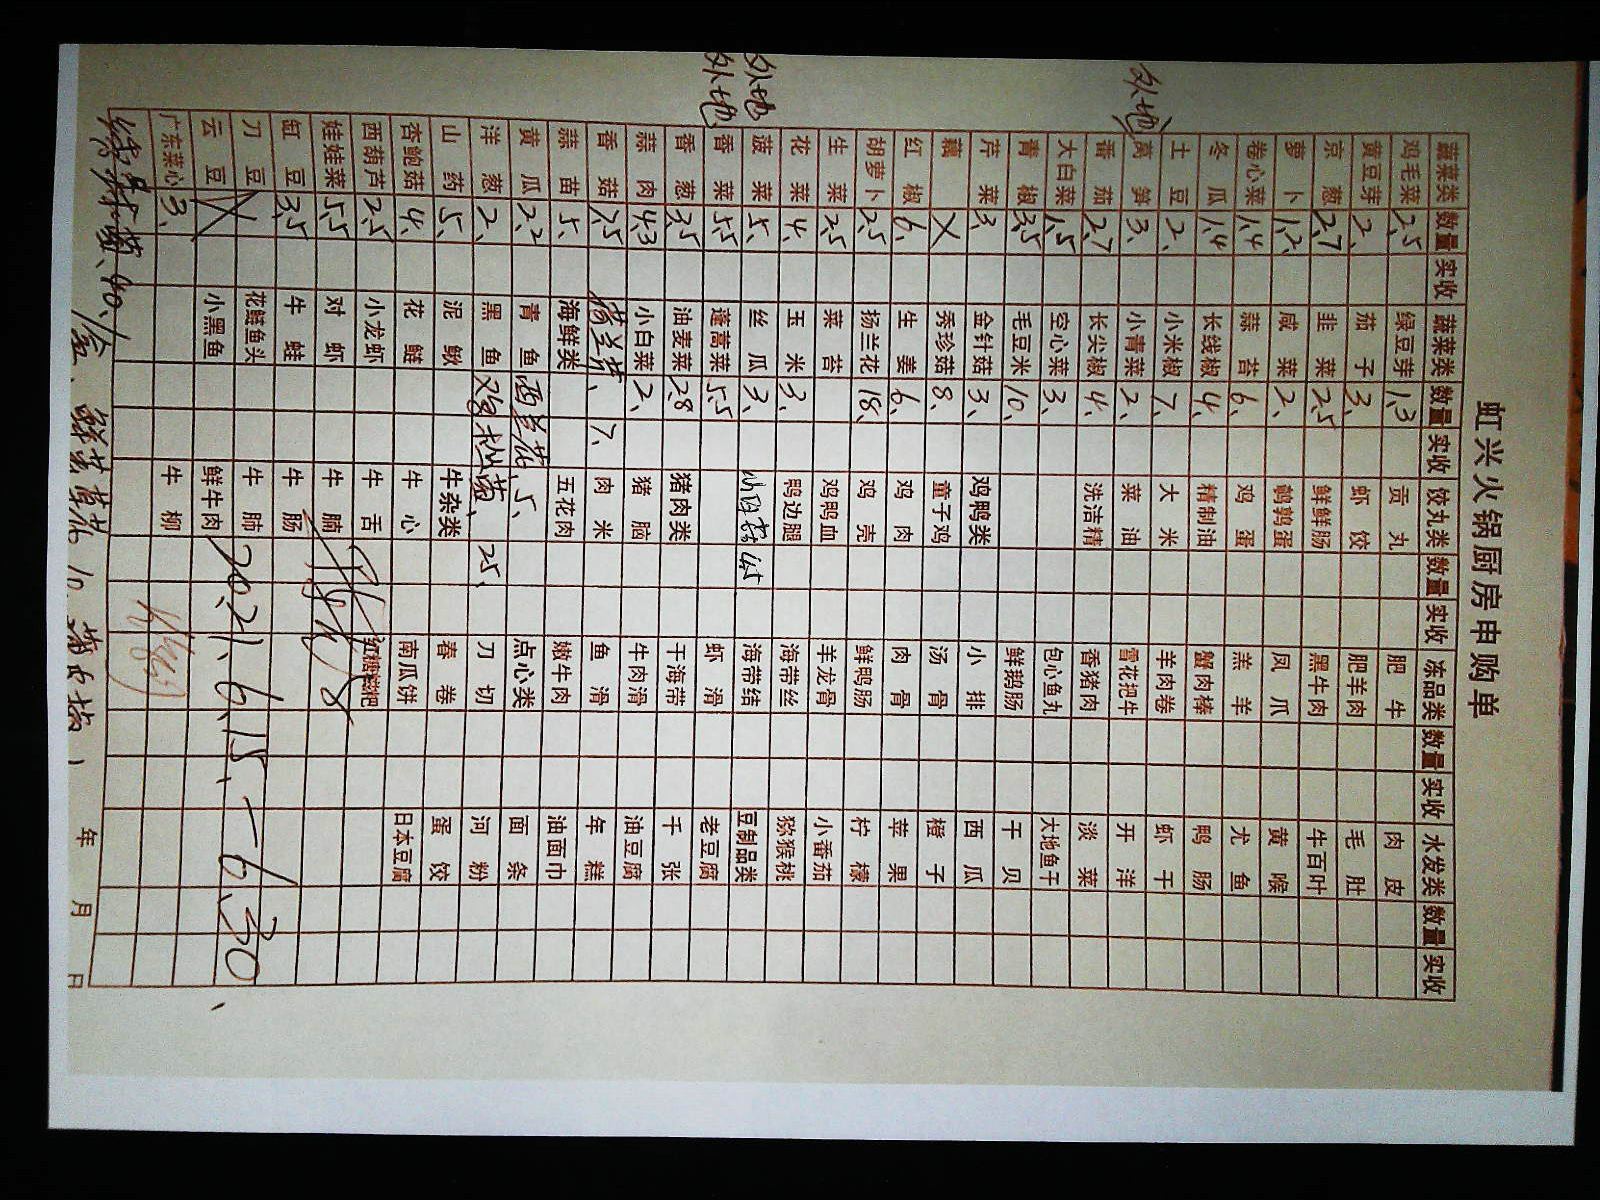 虹兴火锅厨房申购单
蔬菜类 数量 实收 蔬菜类 数量 实收 饺丸类 数量 实收 冻品类 数量 实收 水发类 数量 实收
鸡毛菜 2.5 绿豆芽 1.3 贡丸 肥牛 肉皮
黄豆芽 2、 茄子 3、 虾饺 肥羊肉 毛肚
京葱 2.7 韭菜 2.5 鲜鲜肠 黑牛肉 牛百叶
萝卜 1.2 咸菜 2、 鹌鹑蛋 凤爪 黄喉
卷心菜 1.4 蒜苔 6、 鸡蛋 羔羊 尤鱼
冬瓜 1.4 长线椒 4、 精制油 蟹肉棒 鸭肠
土豆 2、 小米椒 7、 大米 羊肉卷 虾干
外地 莴笋 3、 小青菜 2、 菜油 雪花把牛 开洋
番茄 2.7 长尖椒 4、 洗洁精 香猪肉 淡菜
大白菜 1.5 空心菜 3、 包心鱼丸 大地鱼干
青椒 3.5 毛豆米 10、 鲜鹅肠 干贝
芹菜 3、 金针菇 3、 鸡鸭类 小排 西瓜
藕 X 秀珍菇 8、 童子鸡 汤骨 橙子
红椒 6、 生姜 6、 鸡肉 肉骨 苹果
胡萝卜 2.5 扬兰花 18、 鸡壳 鲜鸭肠 柠檬
生菜 2.5 菜苔 鸡鸭血 羊龙骨 小番茄
花菜 4、 玉米 3、 鸭边腿 海带丝 猕猴桃
外地 菠菜 5、 丝瓜 3、 4.5 海带结 豆制品类
外地 香菜 5.5 蓬蒿菜 5.5 虾滑 老豆腐
香葱 3.5 油麦菜 2.8 猪肉类 干海带 千张
蒜肉 4.3 小白菜 2、 猪脑 牛肉滑 油豆腐
香菇 7.5 7、 肉米 鱼滑 年糕
蒜苗 5、 海鲜类 五花肉 嫩牛肉 油面巾
黄瓜 2.2 青鱼 西兰苔 5、 点心类 面条
洋葱 2、 黑鱼 鸡枞菌、 25、 刀切 河粉
山药 5、 泥鳅 牛杂类 春卷 蛋饺
杏鲍菇 4、 花鲢 牛心 南瓜饼 日本豆腐
西葫芦 2.5 小龙虾 牛舌 红糖糍粑
娃娃菜 5.5 对虾 牛腩
豇豆 3.5 牛蛙 牛肠
刀豆 X 花鲢鱼头 牛肺
云豆 X 小黑鱼 鲜牛肉
广东菜心 3、 牛柳
2021、6.15、-6.30、
年 月 日